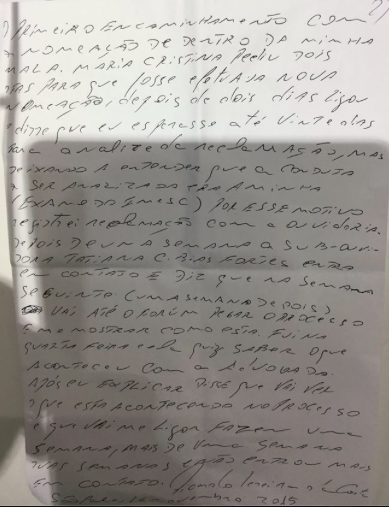 ) PRIMEIRO ENCAMINHAMENTO COM
A NOMEAÇÃO DE DENTRO DA MINHA
MALA. MARIA CRISTINA PEDIU DOIS
DIAS PARA que fosse efetuada NOVA
NOMEAÇÃO, depois de dois dias ligou
e disse que eu esperasse até vinte dias
PARA analize da reclamação, MAS
DEIXANDO A entender que a CONDUTA
A SER ANALIZADA ERA A MINHA
(EXAME DO IMESC) POR ESSE MOTIVO
registrei reclamação com a OUVIDORIA.
DEPOIS DE UMA SEMANA a SUB-OUVI-
DORA TATIANA C. R. AS FORTES entra
em CONTATO E DIZ que NA SEMANA
SEGUINTE (UMA SEMANA DEPOIS)
VAI ATÉ O FORUM PEGAR O PROCESSO
E ME MOSTRAR COMO ESTA. FUI NA
QUARTA FEIRA e ela quiz SABER O que
ACONTECEU COM A ADVOGADA.
APÓS EU EXPLICAR DISSE que VAI VER
O que ESTA ACONTECENDO NO PROCESSO
e que VAI me Ligar FAZEM UMA
SEMANA, MAIS DE UMA SEMANA
DUAS SEMANAS E NÃO entrou mais
em CONTATO.
São Paulo novembro 2015